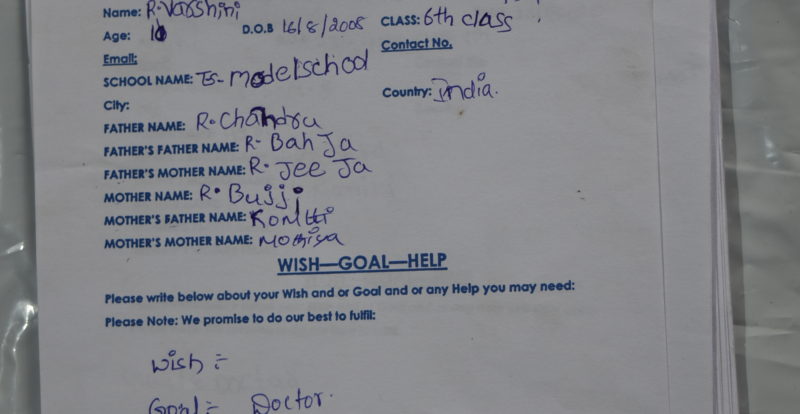 Name: R. Varshini
Age: 10 D.O.B 16/8/2008 CLASS: 6th class
Email: Contact No.
SCHOOL NAME: TS-modelschool
City: Country: India.
FATHER NAME: R. Chandru
FATHER'S FATHER NAME: R- Bah Ja
FATHER'S MOTHER NAME: R. Jee Ja
MOTHER NAME: R. Bujji
MOTHER'S FATHER NAME:
MOTHER'S MOTHER NAME:
WISH—GOAL—HELP
Please write below about your Wish and or Goal and or any Help you may need:
Please Note: We promise to do our best to fulfil:
wish :-
Goal :- Doctor.